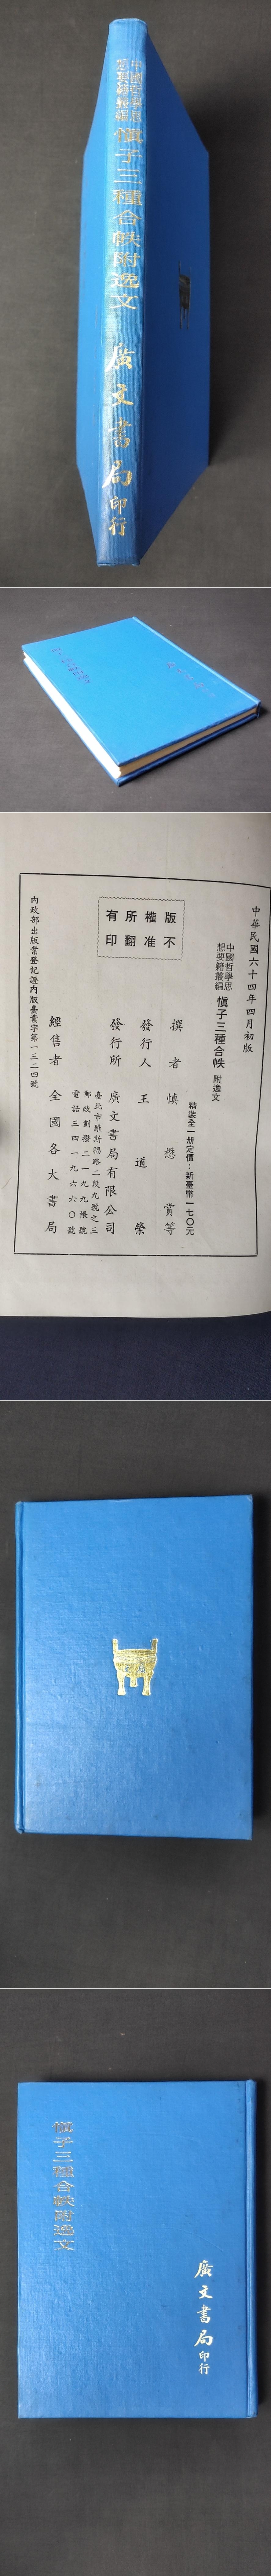 中國哲學思
想要籍叢編
慎子三種合帙附逸文
廣文書局印行
中華民國六十四年四月初版
中國哲學思
想要籍叢編
慎子三種合帙 附逸文
精裝全一册定價：新臺幣一七〇元
撰者 慎懋賞等
發行人 王道榮
發行所 廣文書局有限公司
臺北市羅斯福路二段九號之三
郵政劃撥二一九九帳號
電話三四一九六六〇號
經售者 全國各大書局
內政部出版業登記證內版臺業字第一三二四號
版權所有
不准翻印
慎子三種合帙附逸文
廣文書局印行